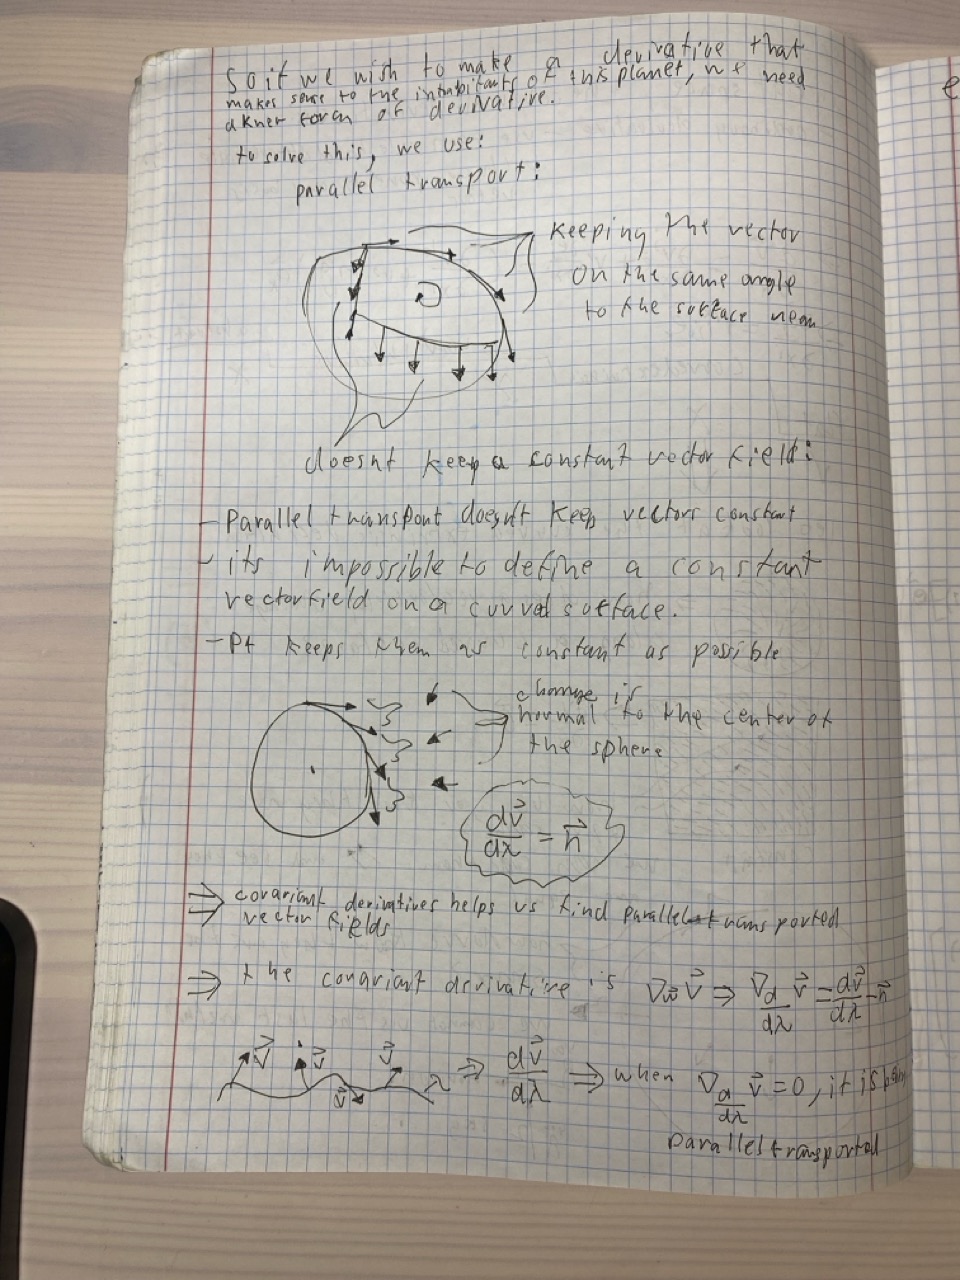 So if we wish to make a derivative that
makes sense to the inhabitants of this planet, we need
a knew form of derivative.
to solve this, we use:
parallel transport:
Keeping the vector
on the same angle
to the surface
doesnt keep a constant vector field:
- Parallel transport doesn't keep vectors constant
- its impossible to define a constant
vectorfield on a curved surface.
- Pt keeps them as constant as possible
change is
normal to the center of
the sphere
dv⃗/dλ = n⃗
⇒ covariant derivatives helps us find parallel transported
vector fields
⇒ the covariant derivative is ∇w⃗ v⃗ ⇒ ∇d/dλ v⃗ = dv⃗/dλ - n⃗
v⃗ v⃗ v⃗ v⃗ λ ⇒ dv⃗/dλ ⇒ when ∇d/dλ v⃗ = 0, it is
parallel transported
e